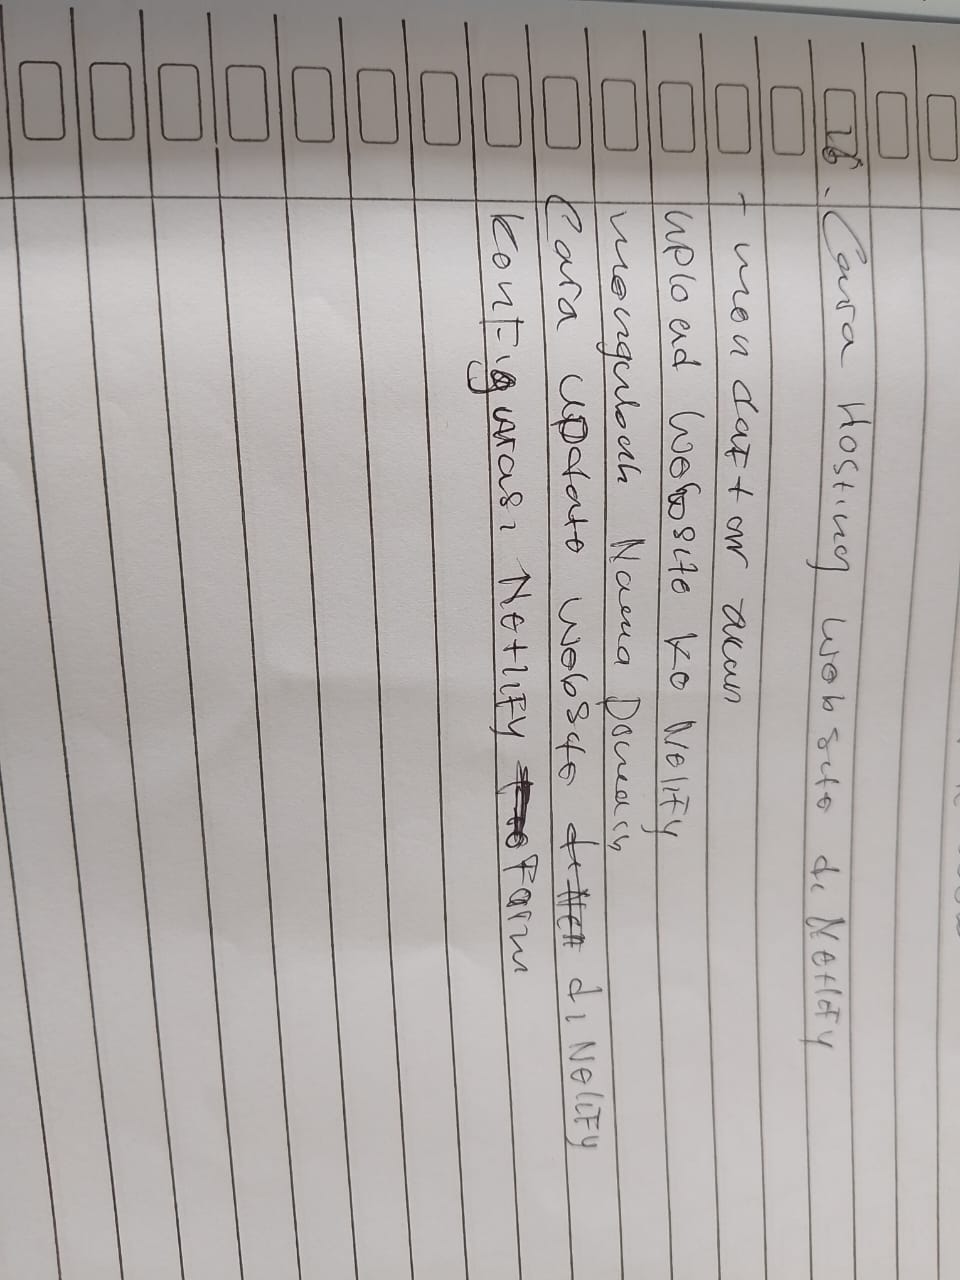 26. Cara Hosting website di Netlify
- mendaftar akun
upload website ke Nelify
mengubah Nama Domain
Cara update website di Nelify
Konfigurasi Netlify Form